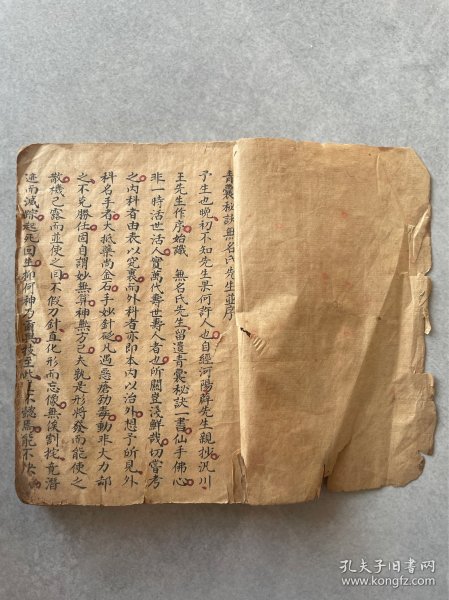 青囊秘訣無名氏先生並序
予生也晚初不知先生果何許人也自經河陽薛先生親抄汎川
王先生作序始識 無名氏先生留遺青囊秘訣一書仙手佛心
非一時活世活人實萬代壽世壽人者也所關豈淺鮮哉切嘗考
之內科者由表以究裏而外科者亦即本內以治外想予所見外
科名手者大抵藥尚金石手妙針砭凡遇惡瘡劲毒動非大力部
之不克勝任固自謂妙無算神無方已夫孰是形將發而能使之
散機已露而並使之回不假刀針直化形而忘像無俟割挖竟潛
迹而滅踪起死回生抑何神乃爾
孔夫子旧书网
www.kongfz.com